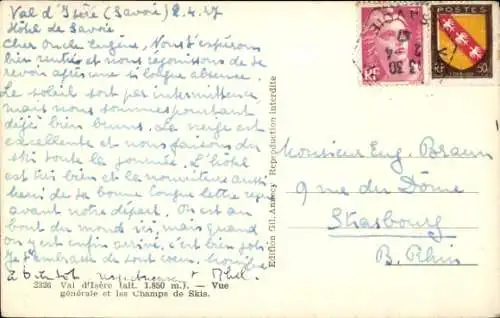 Val d'Isère (Savoie) 2.4.47
Hôtel de Savoie
Cher Oncle Eugène, Nous t'espérons
bien rentré et nous réjouissons de te
revoir après une si longue absence.
Le soleil sort par intermittence,
mais nous sommes pourtant
déjà bien bruns. La neige est
excellente et nous faisons du
ski toute la journée. L'hôtel
est très bien et la nourriture aussi.
de ta bonne longue lettre reçue
avant notre départ. On est au
bout du monde ici, mais quand
on y est enfin arrivé, c'est bien joli.
Je t'embrasse de tout coeur.
à bientôt
2326 Val d'Isère (alt. 1.850 m.). — Vue
générale et les Champs de Skis.
Edition Gil. Annecy Reproduction interdite
RF
13 30
2-4
47
POSTES
LORRAINE
RF 50
Monsieur Eug. Braun
9 rue du Dôme
Strasbourg
B. Rhin